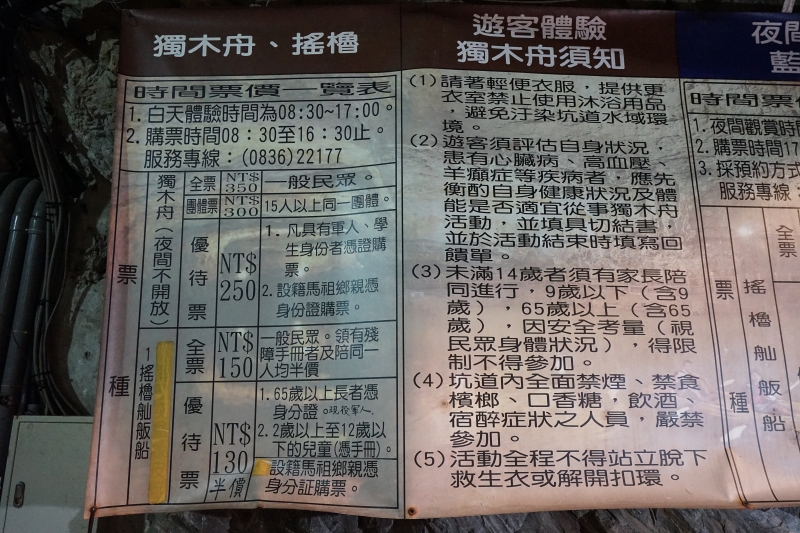 獨木舟、搖櫓
時間票價一覽表
1. 白天體驗時間為08:30~17:00。
2. 購票時間08：30至16：30止。
服務專線：(0836)22177
票種
獨木舟（夜間不開放）
全票
NT$
350
一般民眾。
團體票
NT$
300
15人以上同一團體。
優待票
NT$
250
1. 凡具有軍人、學
生身份者憑證購
票。
2. 設籍馬祖鄉親憑
身份證購票。
搖櫓舢舨船
全票
NT$
150
一般民眾。領有殘
障手冊者及陪同一
人均半價
優待票
NT$
130
半價
1. 65歲以上長者憑
身分證。現役軍人.
2. 2歲以上至12歲以
下的兒童(憑手冊)。
設籍馬祖鄉親憑
身分証購票。
遊客體驗
獨木舟須知
(1) 請著輕便衣服，提供更
衣室禁止使用沐浴用品
，避免汙染坑道水域環
境。
(2) 遊客須評估自身狀況，
患有心臟病、高血壓、
羊癲症等疾病者，應先
衡酌自身健康狀況及體
能是否適宜從事獨木舟
活動，並填具切結書，
並於活動結束時填寫回
饋單。
(3) 未滿14歲者須有家長陪
同進行，9歲以下（含9
歲），65歲以上（含65
歲），因安全考量（視
民眾身體狀況），得限
制不得參加。
(4) 坑道內全面禁煙、禁食
檳榔、口香糖，飲酒、
宿醉症狀之人員，嚴禁
參加。
(5) 活動全程不得站立脫下
救生衣或解開扣環。
夜間
藍
時間票
1. 夜間觀賞時
2. 購票時間17
3. 採預約方式
服務專線
票種
搖櫓舢舨船
全票